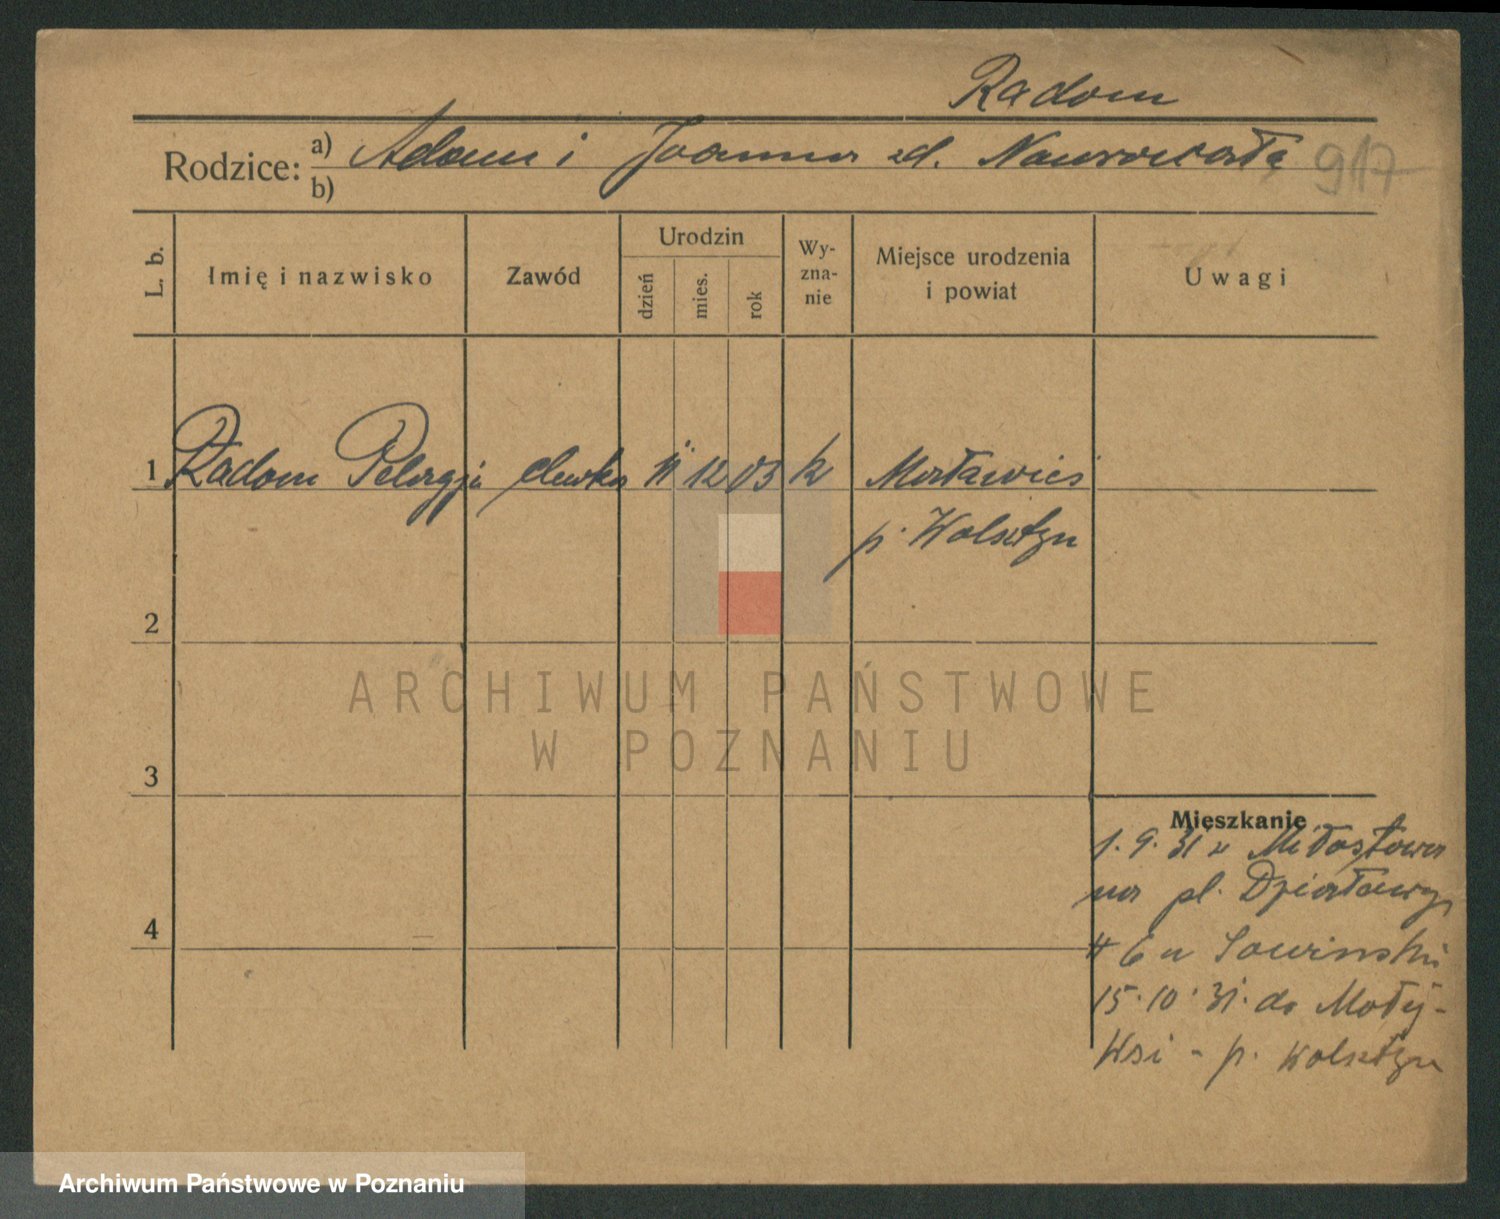 Radom
Rodzice: a) Adam i Joanna zd. Nawrowcała
b)
917
L. b.
Imię i nazwisko
Zawód
Urodzin
dzień
mies.
rok
Wy-
zna-
nie
Miejsce urodzenia
i powiat
Uwagi
1 Radom Pelagja 11 12 03 k Maławieś
p. Wolsztyn
2
3
4
Mieszkanie
1. 9. 31 z Miłostowa
na pl. Działowy
# 6 u Sowinski
15. 10. 31. do Małej-
Wsi - p. Wolsztyn
ARCHIWUM PAŃSTWOWE
W POZNANIU
Archiwum Państwowe w Poznaniu